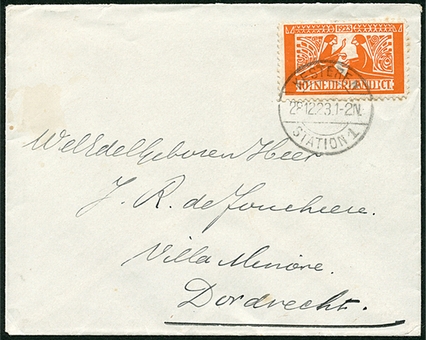 1923
10 NEDERLAND CT
KESTEREN
12 23.1-2N.
STATION 1
WelEdelGeboren Heer
J. R. de Joncheere.
Villa Minore.
Dordrecht.